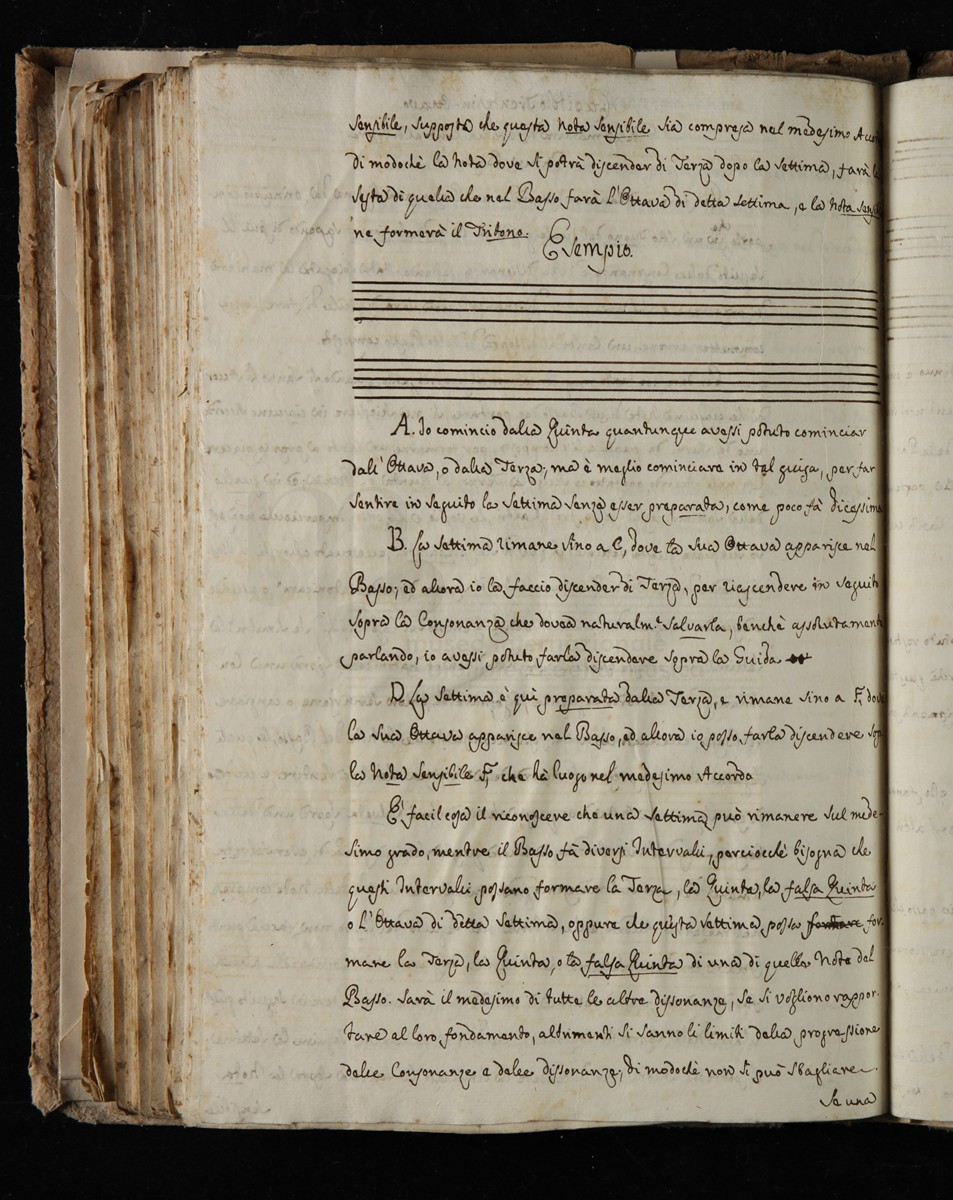 sensibile, supposto che questa nota sensibile sia compresa nel medesimo Accor
di modochè la nota dove si potrà discender di Terza dopo la settima, farà la
sesta di quella che nel Basso farà l'Ottava di detta settima, e la nota sensibile
ne formerà il Tritono.
Esempio.
A. Io comincio dalla Quinta quantunque avessi potuto cominciar
dall'Ottava, o dalla Terza; ma è meglio cominciare in tal guisa, per far
sentire in seguito la settima senza esser preparata, come poco fà dicessimo
B. La settima rimane sino a C, dove la sua Ottava apparisce nel
Basso; ed allora io la faccio discender di Terza, per riascendere in seguito
sopra la Consonanza che dovea naturalm.e salvarla, benchè assolutament
parlando, io avessi potuto farla discendere sopra la Guida
D. La settima è quì preparata dalla Terza, e rimane sino a F, dove
la sua Ottava apparisce nel Basso, ed allora io posso farla discendere sop
la Nota sensibile F, che hà luogo nel medesimo Accordo
E' facil cosa il riconoscere che una settima può rimanere sul mede-
simo grado, mentre il Basso fà diversi Intervalli, perciocchè bisogna che
questi Intervalli possano formare la Terza, la Quinta, la falsa Quinta
o l'Ottava di detta settima, oppure che questa settima possa for-
mare la Terza, la Quinta, o la falsa Quinta di una di quelle Note del
Basso. Sarà il medesimo di tutte le altre dissonanze, se si vogliono rappor-
tare al loro fondamento, altrimenti si sanno li limiti della progressione
delle Consonanze e delle dissonanze, di modochè non si può sbagliare.
Se una